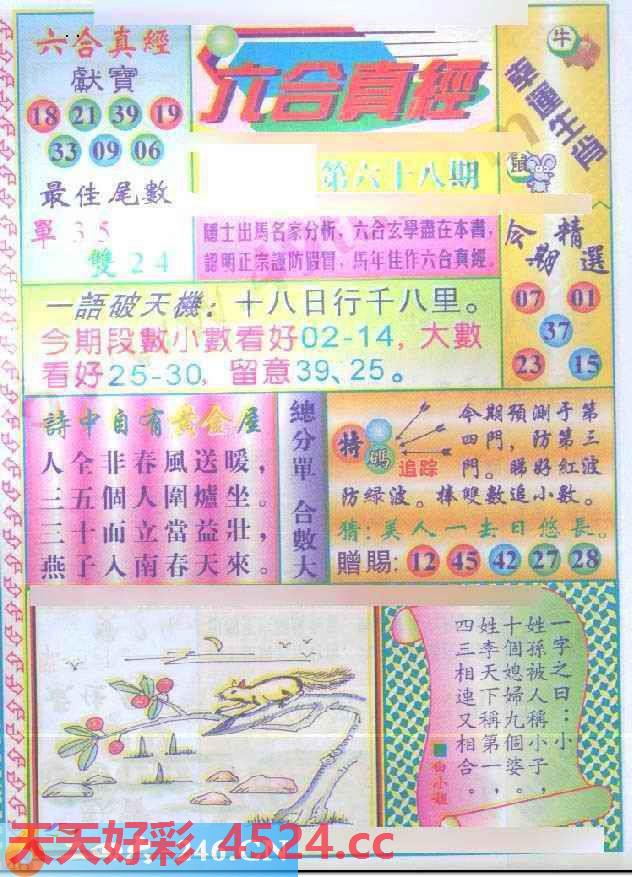 六合真經
獻寶
18 21 39 19
33 09 06
最佳尾數
單 35
雙 24
六合真經
第六十八期
隱士出馬名家分析，六合玄學盡在本書，
認明正宗謹防假冒，馬年佳作六合真經。
幸運生肖
牛
鼠
今期精選
07 01
37
23 15
一語破天機：十八日行千八里。
今期段數小數看好02-14，大數
看好25-30，留意39、25。
詩中自有黃金屋
人全非春風送暖，
三五個人圍爐坐。
三十而立當益壯，
燕子入南春天來。
總分單 合數大
特碼追踪
今期預測于第
四門，防第三
門。睇好紅波
防绿波。捧雙數追小數。
猜：美人一去日悠長。
贈賜：12 45 42 27 28
一字之曰：小
姓孫被人稱小子，
十個媳婦九個婆。
姓李天下稱第一，
四三相連又相合。
天天好彩 4524.cc